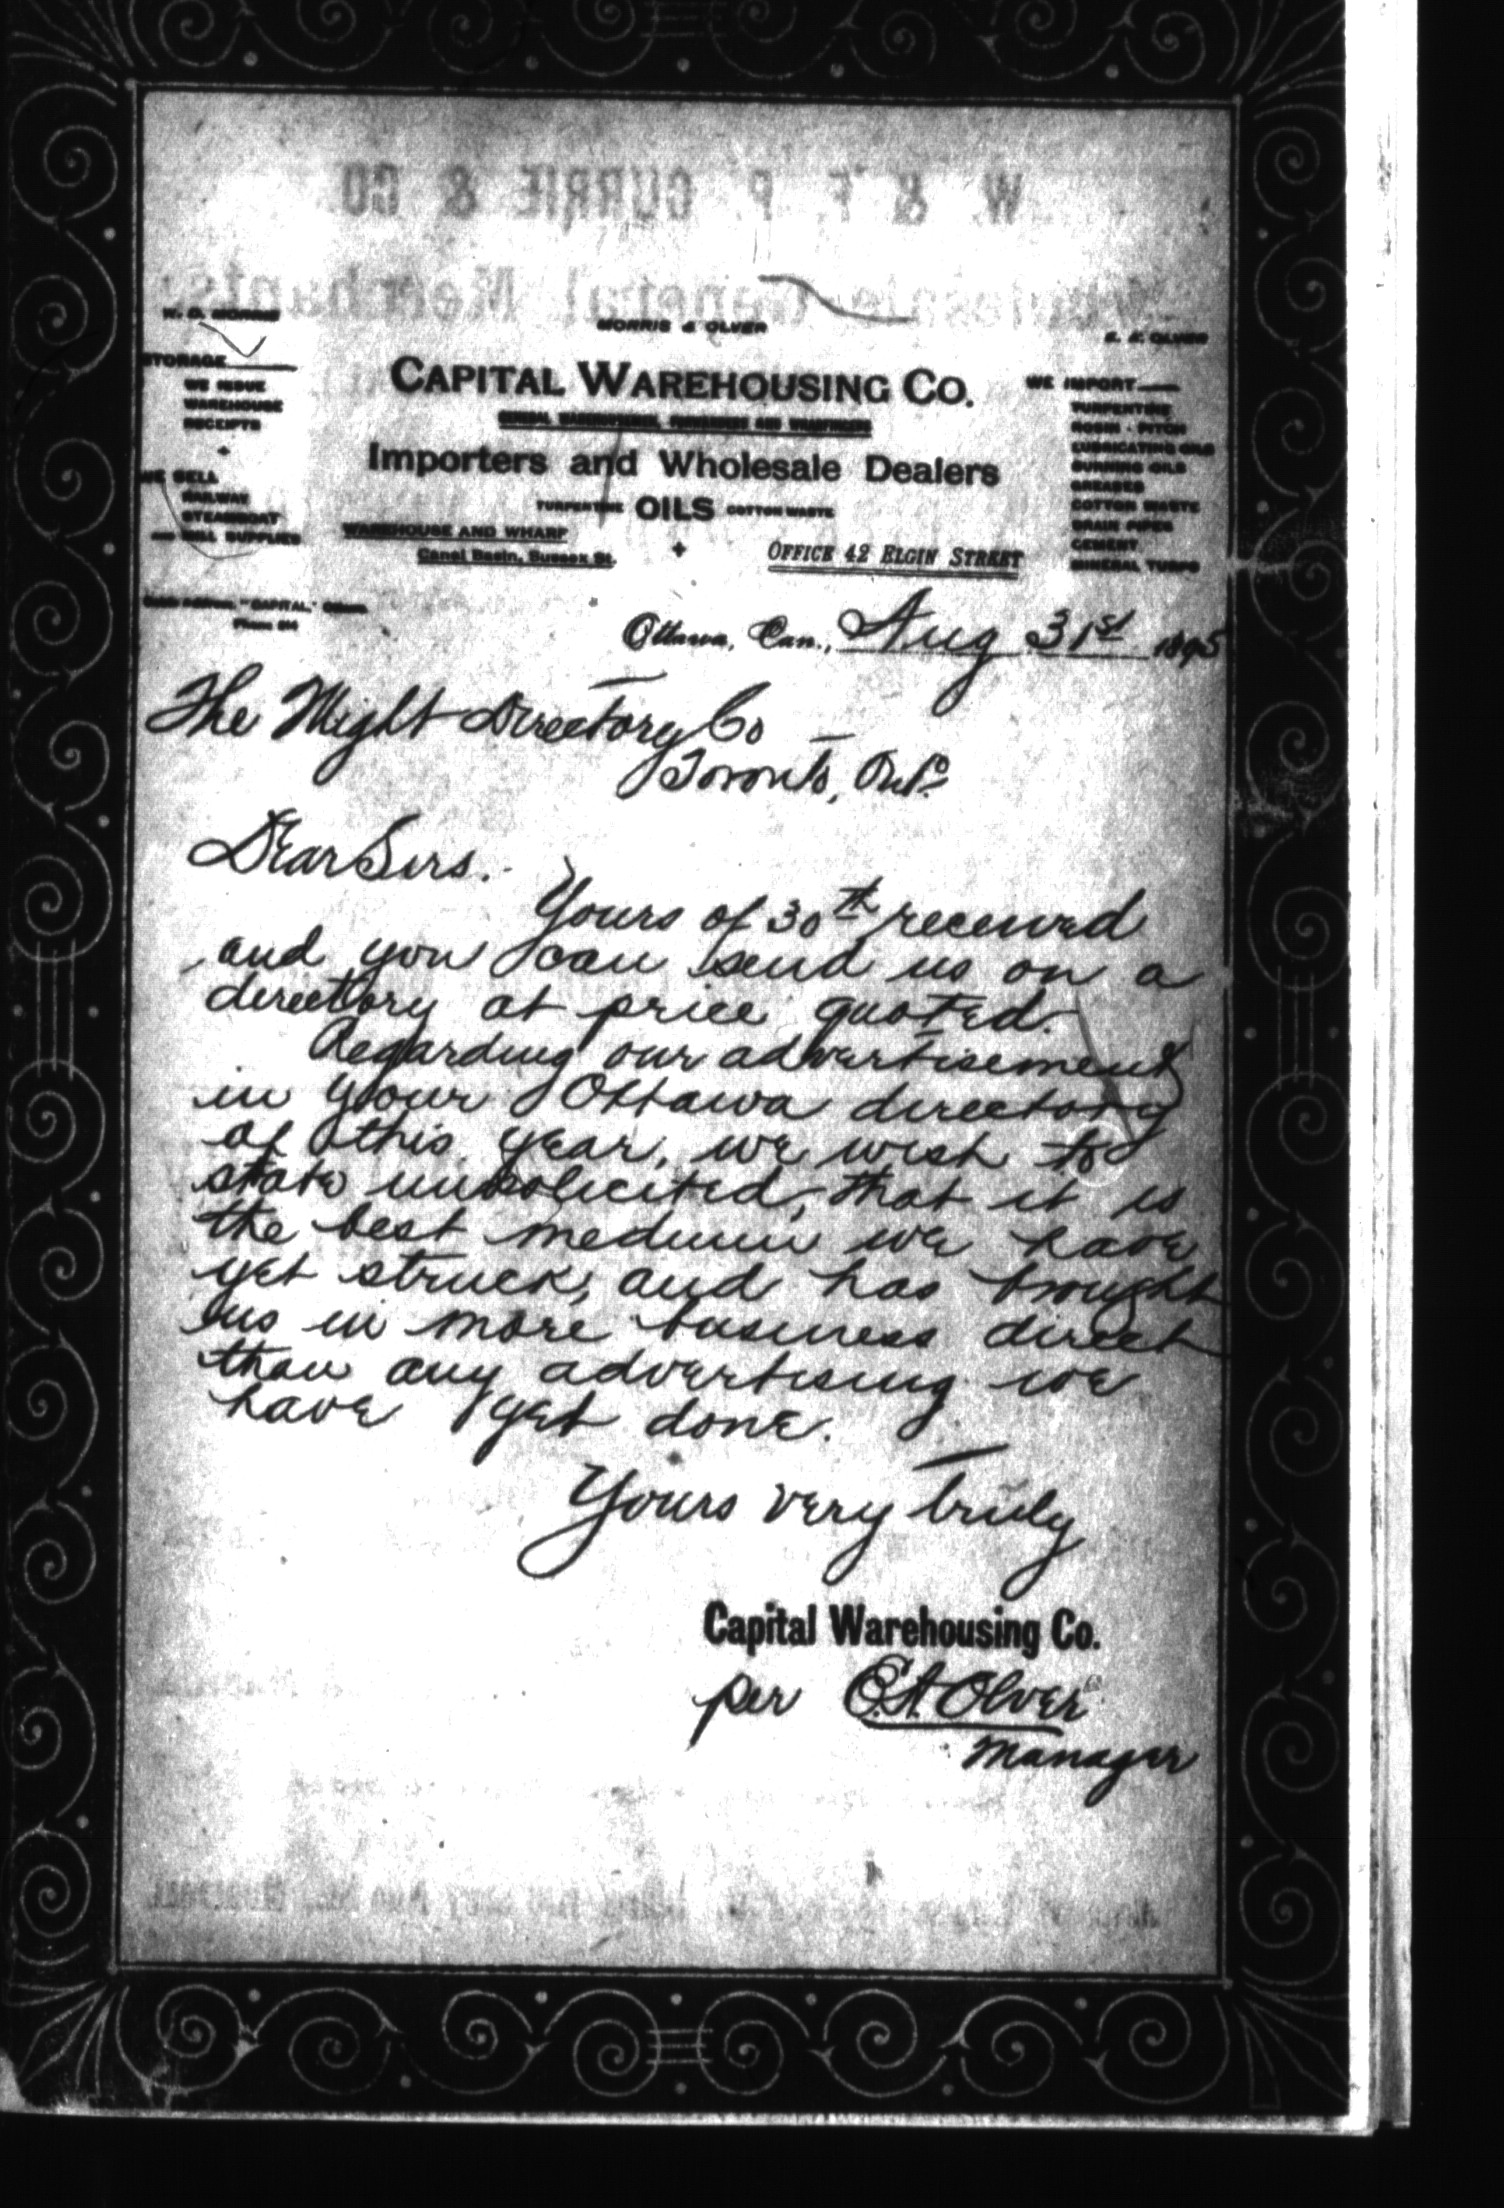 W. & F. P. CURRIE & CO.
Wholesale General Merchants
MORRIS & OLVER
W. D. MORRIS
E. A. OLVER
CAPITAL WAREHOUSING CO.
Importers and Wholesale Dealers
TURPENTINE OILS COTTON WASTE
WAREHOUSE AND WHARF
Canal Basin, Sussex St.
OFFICE 42 ELGIN STREET
STORAGE
WE ISSUE
WAREHOUSE
RECEIPTS
WE SELL
RAILWAY
STEAMBOAT
AND MILL SUPPLIES
WE IMPORT
TURPENTINE
ROSIN - PITCH
LUBRICATING OILS
BURNING OILS
GREASES
COTTON WASTE
DRAIN PIPES
CEMENT
MINERAL TURPS
"CAPITAL,"
Ottawa, Can., Aug 31st 1895
The Might Directory Co
Toronto, Onto.
Dear Sirs.
Yours of 30th received
and you can send us on a
directory at price quoted.
Regarding our advertisement
in your Ottawa directory
of this year, we wish to
state unsolicited, that it is
the best medium we have
yet struck, and has brought
us in more business direct
than any advertising we
have yet done.
Yours very truly
Capital Warehousing Co.
per E.A. Olver
Manager